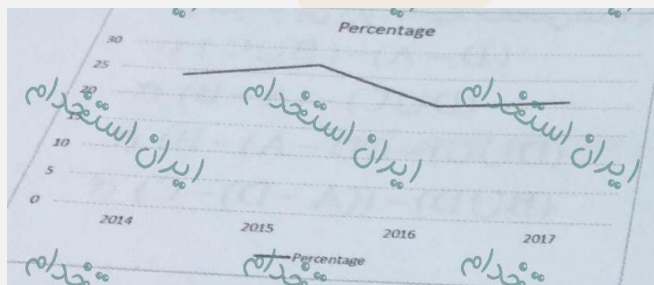 Percentage
30
25
20
15
10
5
0
2014 2015 2016 2017
Percentage
ایران استخدام
ایران استخدام
ایران استخدام